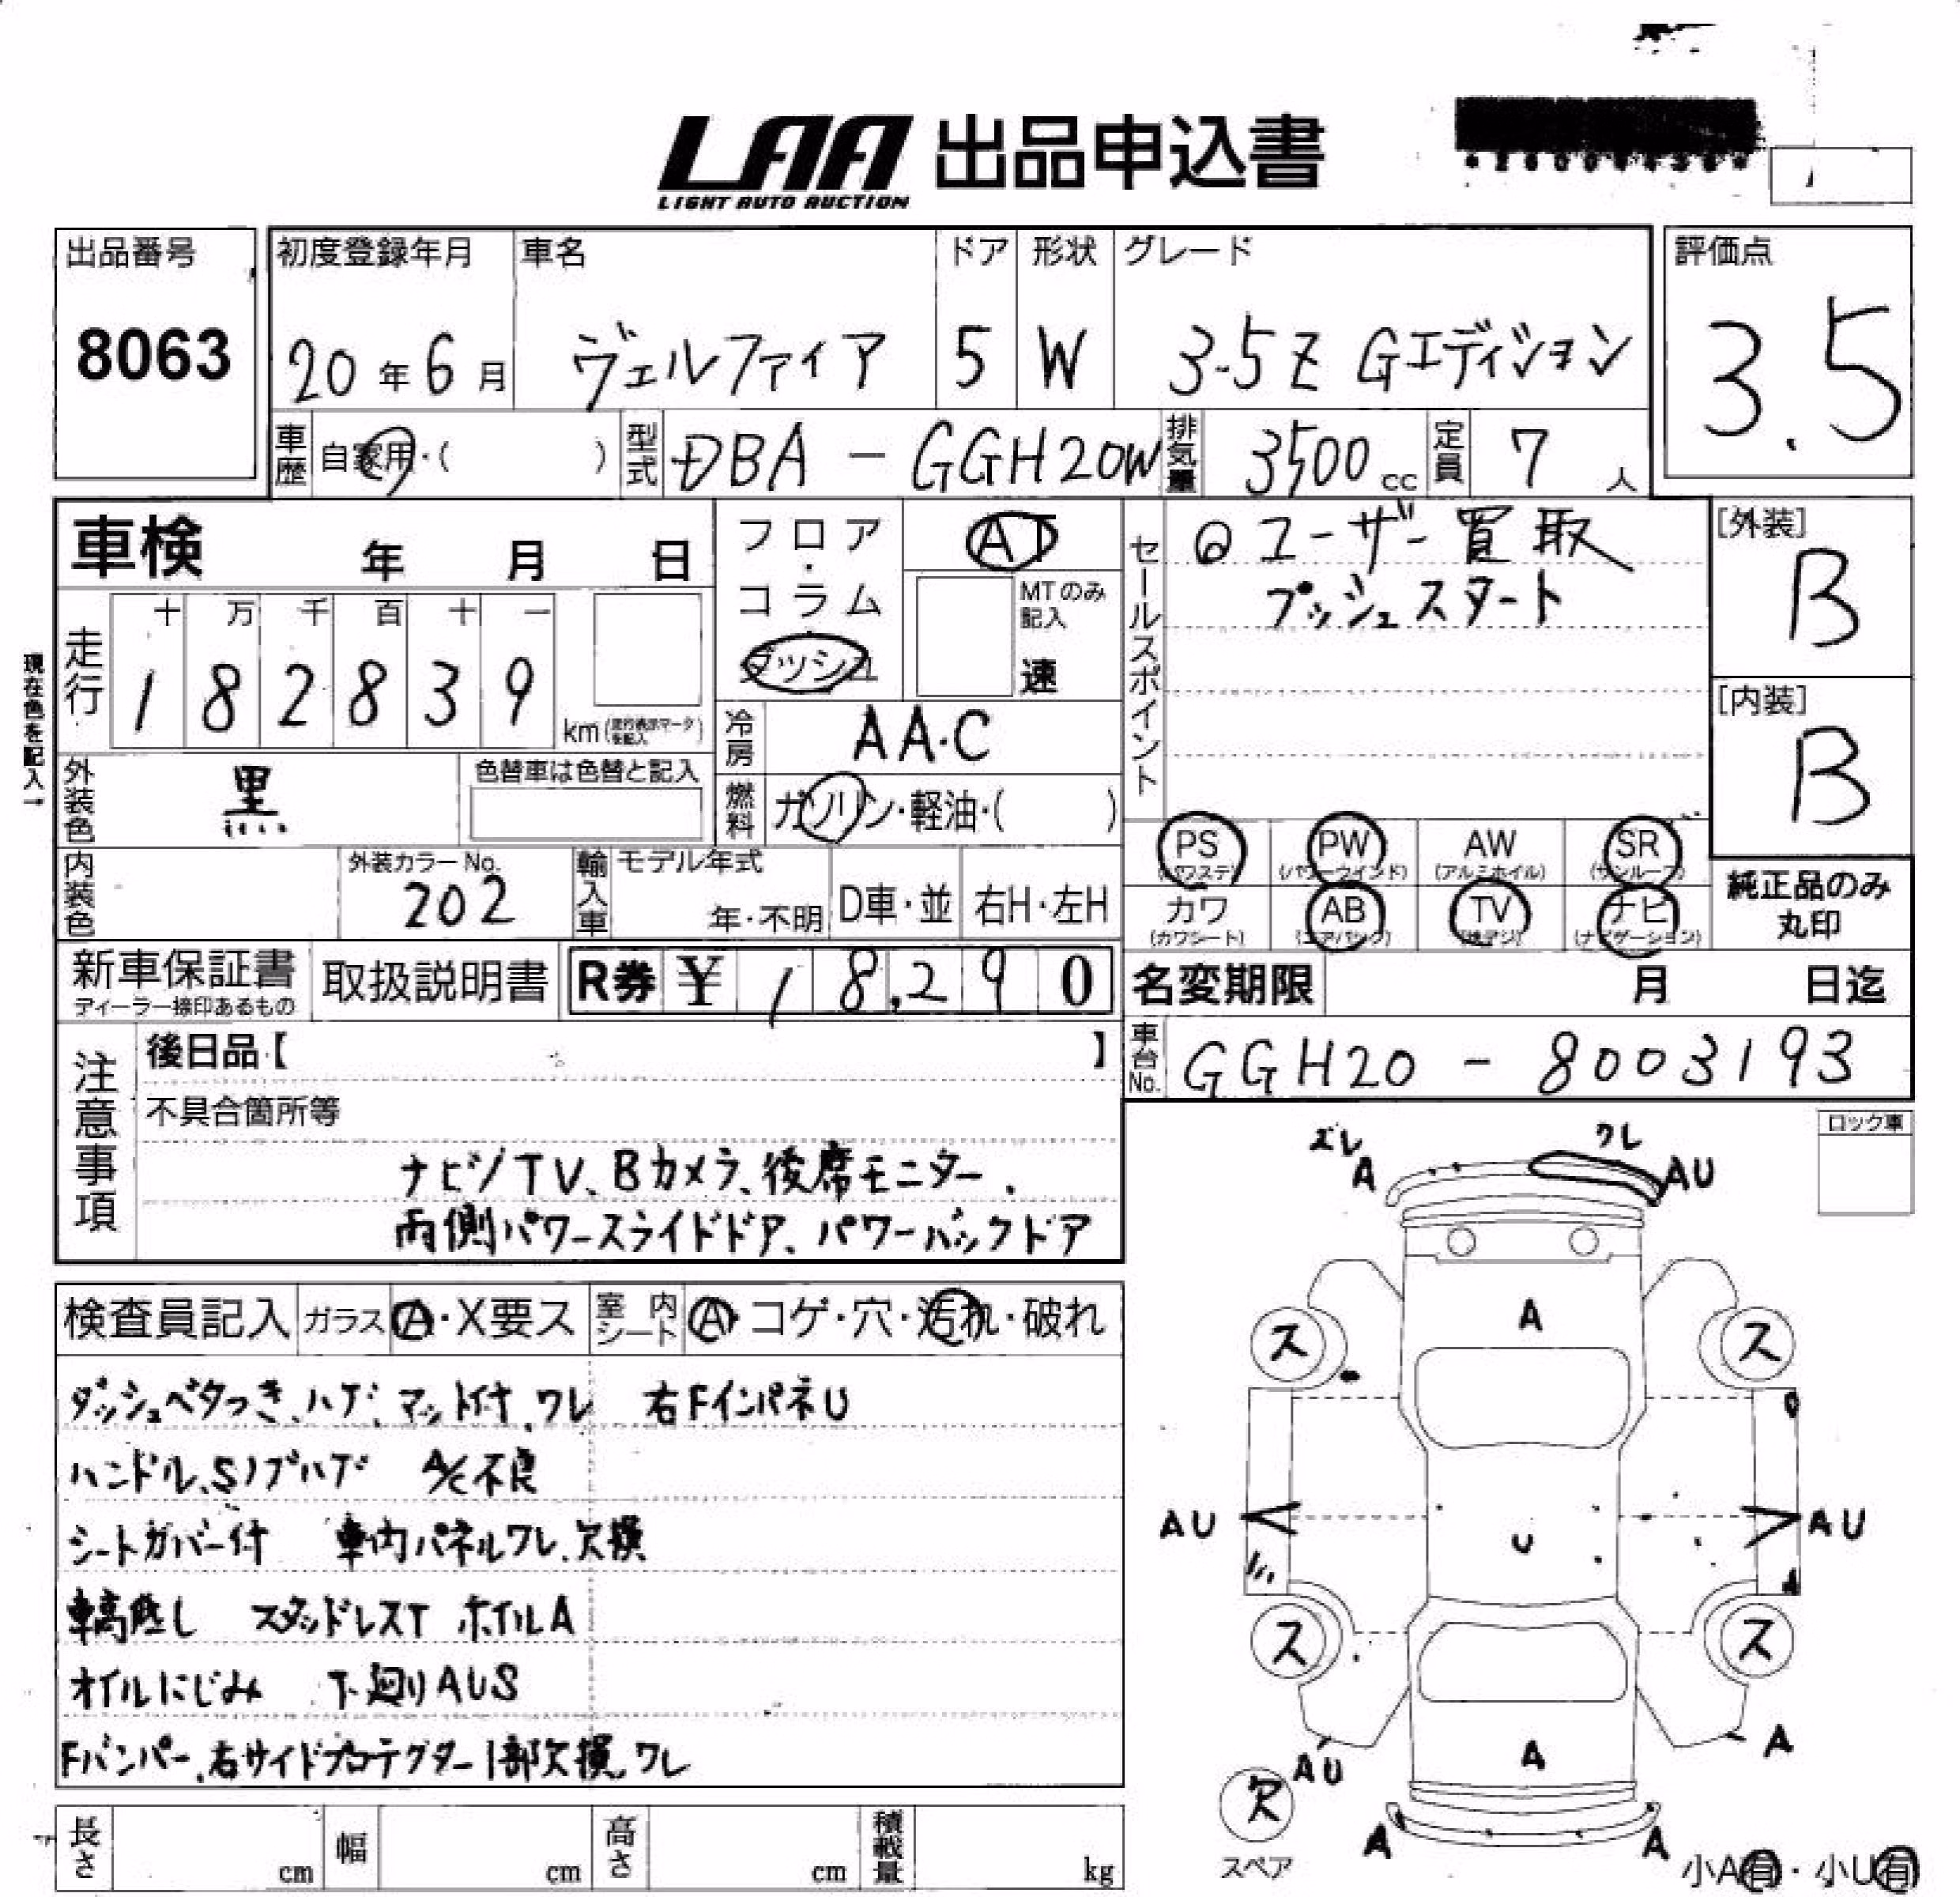 LAA 出品申込書
LIGHT AUTO AUCTION
出品番号
8063
初度登録年月
20年6月
車名
ヴェルファイア
ドア
5
形状
W
グレード
3.5Z Gエディション
評価点
3.5
車歴 自家用・( )
型式 DBA-GGH20W
排気量 3500cc
定員 7人
車検 年 月 日
フロア・コラム・ダッシュ
AT
MTのみ記入
速
セールスポイント
ユーザー買取
プッシュスタート
[外装]
B
[内装]
B
現在色を記入→
走行
十 万 千 百 十 一
1 8 2 8 3 9
km (走行表示マークを記入)
冷房 AA.C
外装色 黒
色替車は色替と記入
燃料 ガソリン・軽油・( )
内装色
外装カラーNo.
202
輸入車 モデル年式
年・不明
D車・並
右H・左H
PS (パワステ)
PW (パワーウインド)
AW (アルミホイル)
SR (サンルーフ)
カワ (カワシート)
AB (エアバック)
TV (地デジ)
ナビ (ナビゲーション)
純正品のみ
丸印
新車保証書
ディーラー捺印あるもの
取扱説明書
R券 ¥ 18,290
名変期限 月 日迄
車台No. GGH20-8003193
注意事項
後日品【 】
不具合箇所等
ナビ/TV、Bカメラ、後席モニター.
両側パワースライドドア、パワーバックドア
ロック車
検査員記入
ガラス A・X要ス
室内シート A・コゲ・穴・汚れ・破れ
ダッシュベタつき、ハゲ、マット付、ワレ 右FインパネU
ハンドル、Sノブハゲ A/C不良
シートカバー付 車内パネルワレ、欠損
車高低し スタッドレスT ホイルA
オイルにじみ 下廻りAUS
Fバンパー、右サイドプロテクター1部欠損、ワレ
ズレ
A
ワレ
AU
A
ス
ス
AU
U
AU
ス
ス
AU
A
A
欠
スペア
A
A
小A有・小U有
長さ cm
幅 cm
高さ cm
積載量 kg